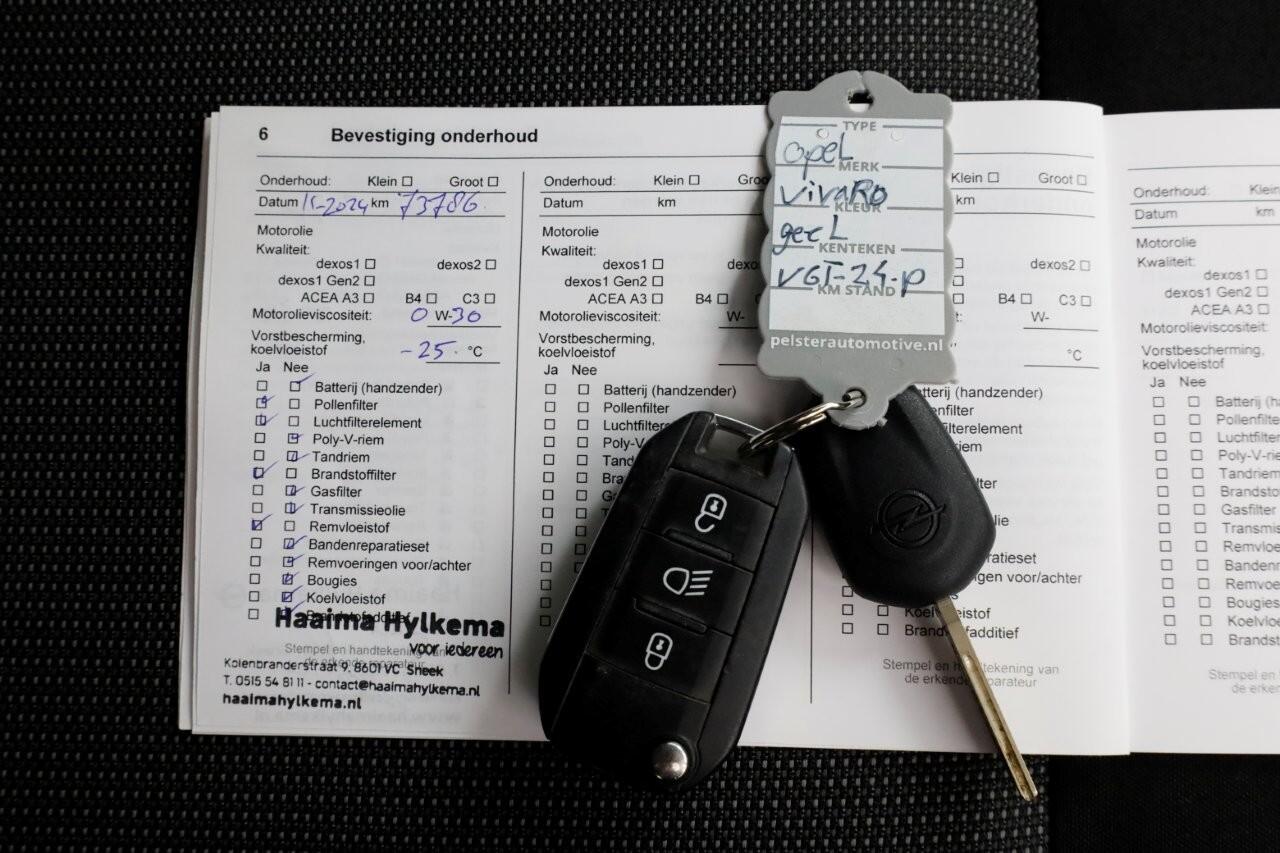 6 Bevestiging onderhoud
Onderhoud: Klein Groot
Datum 11-2024 km 73786
Motorolie
Kwaliteit:
dexos1 dexos2
dexos1 Gen2
ACEA A3 B4 C3
Motorolieviscositeit: 0 W-30
Vorstbescherming,
koelvloeistof -25 °C
Ja Nee
Batterij (handzender)
Pollenfilter
Luchtfilterelement
Poly-V-riem
Tandriem
Brandstoffilter
Gasfilter
Transmissieolie
Remvloeistof
Bandenreparatieset
Remvoeringen voor/achter
Bougies
Koelvloeistof
Brandstofadditief
Haaima Hylkema
voor iedereen
Stempel en handtekening van
de erkende reparateur
Kolenbranderstraat 9, 8601 VC Sneek
T. 0515 54 81 11 - contact@haaimahylkema.nl
haaimahylkema.nl
Onderhoud: Klein Groo
Datum km
Motorolie
Kwaliteit:
dexos1 dexo
dexos1 Gen2
ACEA A3 B4
Motorolieviscositeit: W-
Vorstbescherming,
koelvloeistof
Ja Nee
Batterij (handzender)
Pollenfilter
Luchtfilterele
Poly-V-
Tand
Bra
TYPE
opel
MERK
vivaRo
KLEUR
geel
KENTEKEN
VGT-24-P
KM STAND
pelsterautomotive.nl
Klein Groot
km
dexos2
B4 C3
W-
°C
handzender)
enfilter
filterelement
riem
ter
lie
atieset
ngen voor/achter
Koelvloeistof
Brandstofadditief
Stempel en handtekening van
de erkende reparateur
Onderhoud: Klein
Datum km
Motorolie
Kwaliteit:
dexos1
dexos1 Gen2
ACEA A3
Motorolieviscositeit:
Vorstbescherming,
koelvloeistof
Ja Nee
Batterij (ha
Pollenfilte
Luchtfilte
Poly-V-rie
Tandriem
Brandsto
Gasfilter
Transmis
Remvloe
Banden
Remvoe
Bougies
Koelvlo
Brandst
Stempel en
de erke